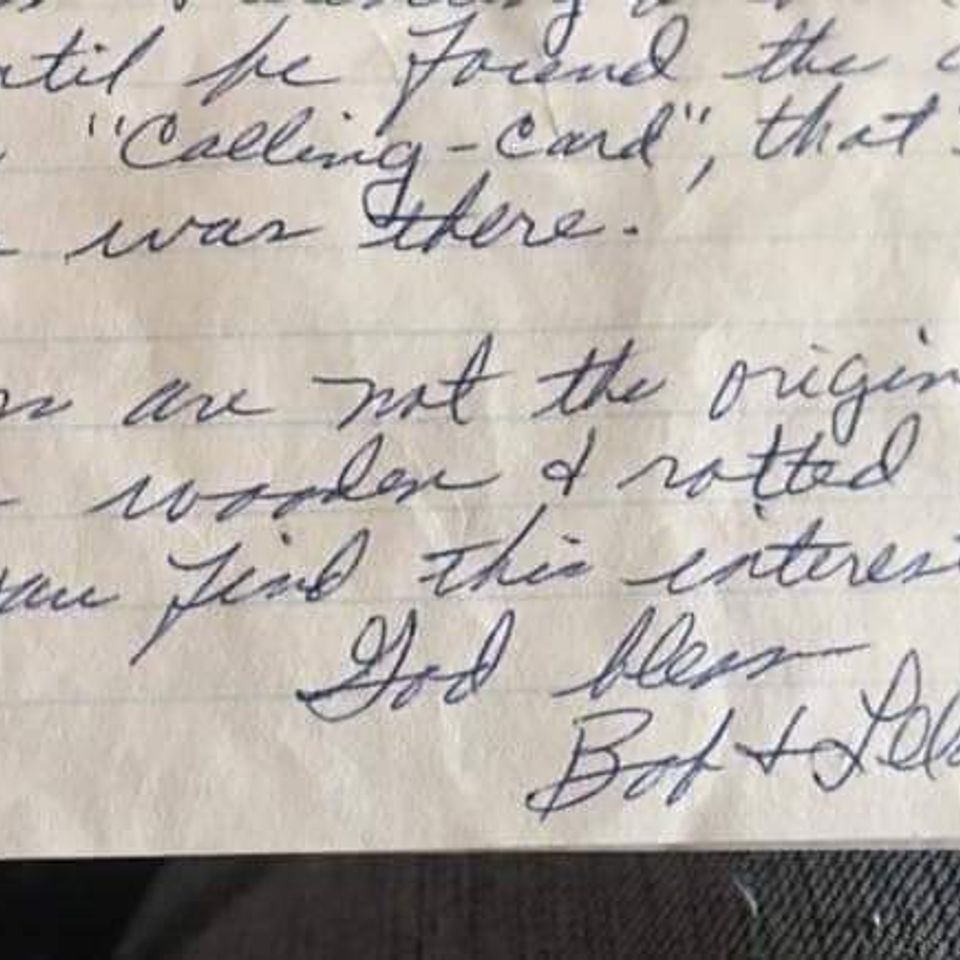 be found the
"Calling-Card", that
was there.
are not the origin
wooden & rotted
find this interest
God bless
Bob &